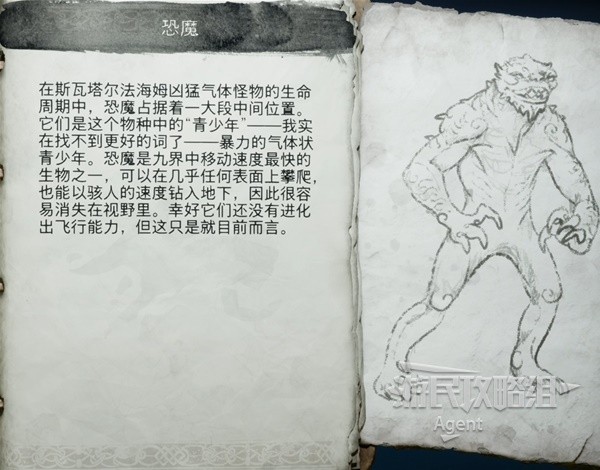 恐魔
在斯瓦塔尔法海姆凶猛气体怪物的生命
周期中，恐魔占据着一大段中间位置。
它们是这个物种中的“青少年”——我实
在找不到更好的词了——暴力的气体状
青少年。恐魔是九界中移动速度最快的
生物之一，可以在几乎任何表面上攀爬，
也能以骇人的速度钻入地下，因此很容
易消失在视野里。幸好它们还没有进化
出飞行能力，但这只是就目前而言。
游民攻略组
Agent